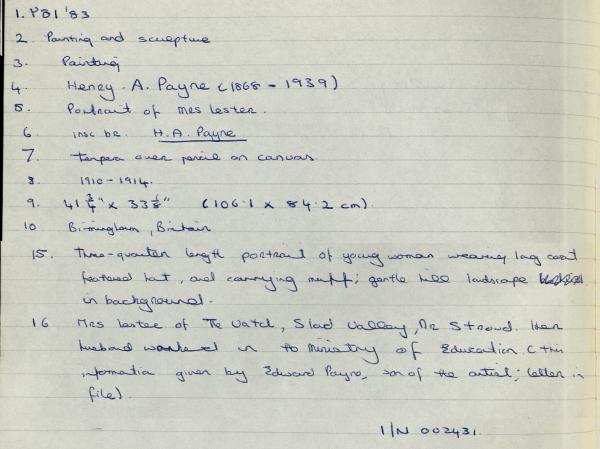 1. P81 '83
2. Painting and sculpture
3. Painting
4. Henry. A. Payne (1868 - 1939)
5. Portrait of Mrs Lester.
6. insc br. H.A. Payne
7. tempera over pencil on canvas.
8. 1910-1914.
9. 41 3/4" x 33 1/8" (106.1 x 84.2 cm).
10 Birmingham, Britain
15. Three-quarter length portrait of young woman wearing long coat
feathered hat, and carrying muff; gentle hill landscape
in background.
16 Mrs Lester of The Vatch, Slad Valley, Nr Stroud. Her
husband worked in the Ministry of Education (this
information given by Edward Payne, son of the artist; letter in
file)
I/N 002431.